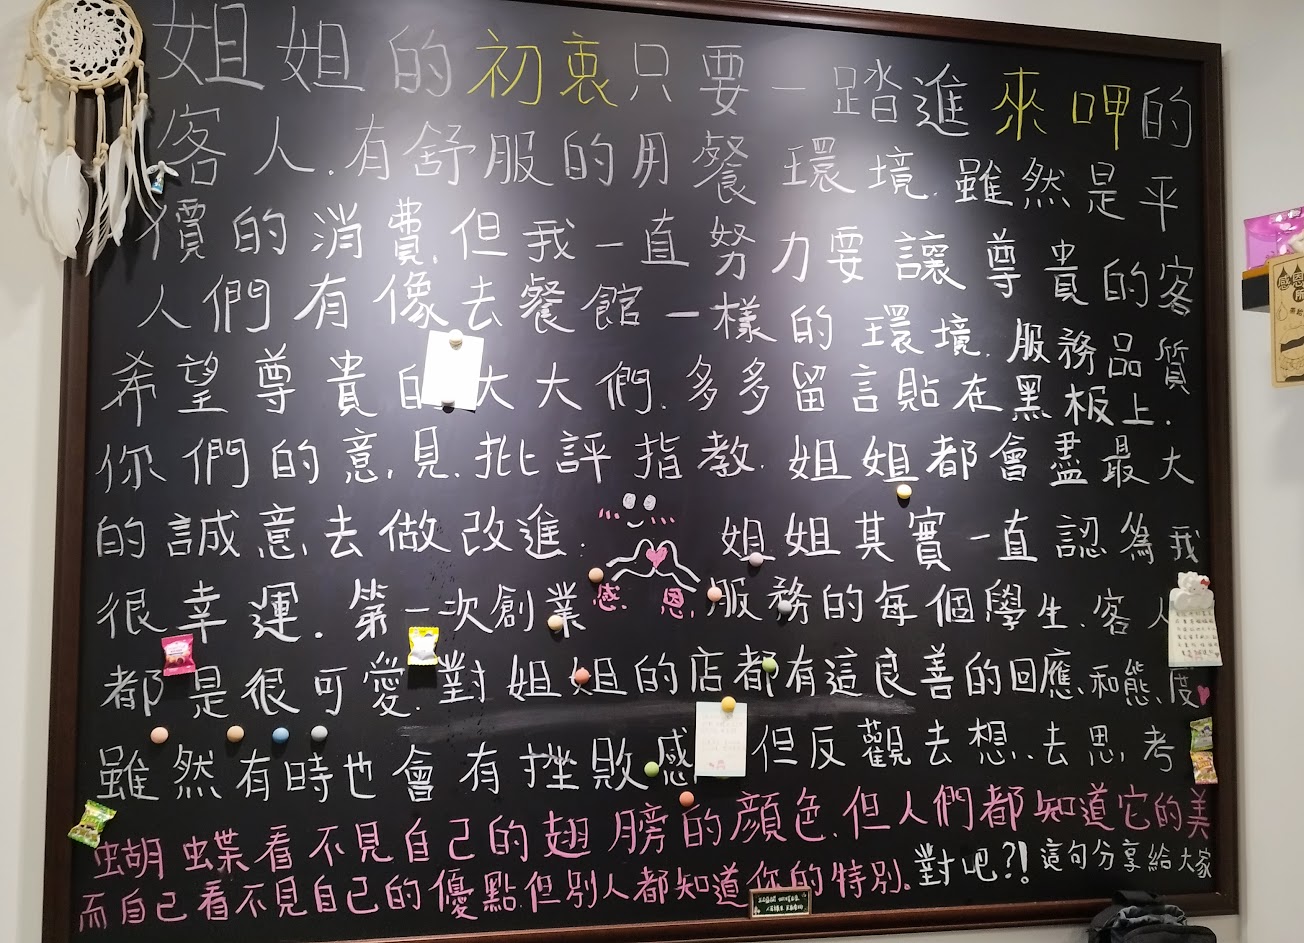 姐姐的初衷只要一踏進來呷的
客人.有舒服的用餐環境.雖然是平
價的消費.但我一直努力要讓尊貴的客
人們有像去餐館一樣的環境.服務品質
希望尊貴的大大們.多多留言貼在黑板上.
你們的意見.批評指教.姐姐都會盡最大
的誠意去做改進.姐姐其實一直認為我
很幸運.第一次創業 感恩 服務的每個學生.客人
都是很可愛.對姐姐的店都有這良善的回應.和態度
雖然有時也會有挫敗感 但反觀去想.去思考
蝴蝶看不見自己的翅膀的顏色.但人們都知道它的美
而自己看不見自己的優點.但別人都知道你的特別。對吧?! 這句分享給大家
感恩